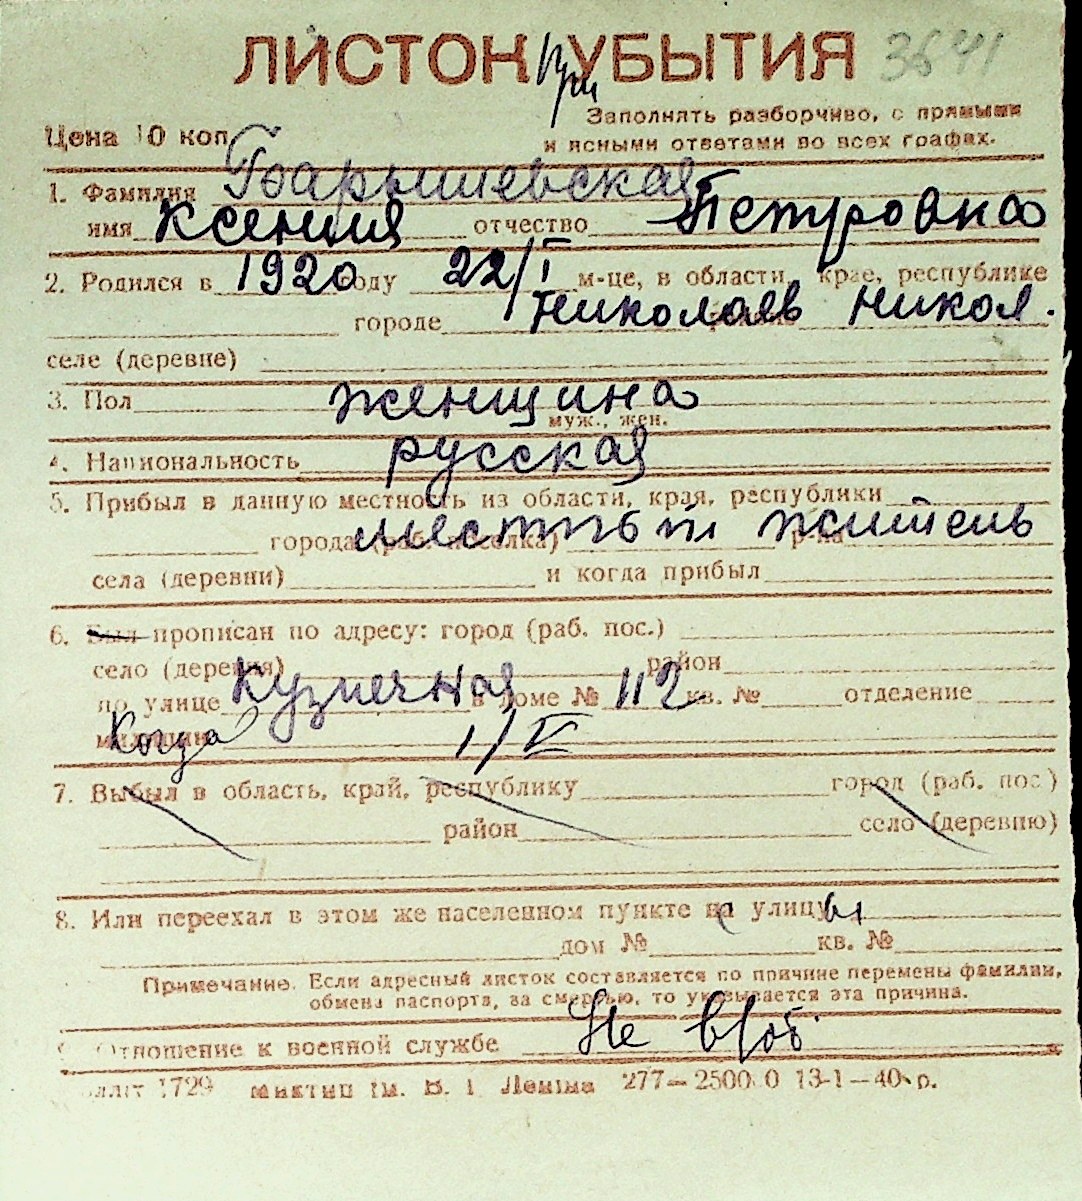 ЛИСТОК при УБЫТИЯ 3641
Заполнять разборчиво, с прямыми
Цена 10 коп. и ясными ответами во всех графах.
1. Фамилия Барышевская
имя Ксения отчество Петровна
2. Родился в 1920 году 22/I м-це, в области, крае, республике
городе Николаев Никол.
селе (деревне)
3. Пол женщина
муж., жен.
4. Национальность русская
5. Прибыл в данную местность из области, края, республики
города (раб. поселка) местный житель р-на
села (деревни) и когда прибыл
6. Был прописан по адресу: город (раб. пос.)
село (деревня) район
по улице Кузнечная в доме № 112 кв. № отделение
милиции Когда 1/V
7. Выбыл в область, край, республику город (раб. пос.)
район село (деревню)
8. Или переехал в этом же населенном пункте с улицы
дом № кв. №
Примечание. Если адресный листок составляется по причине перемены фамилии,
обмена паспорта, за смертью, то указывается эта причина.
9. Отношение к военной службе Не в/об.
1729 им. В. І. Леніна 277—2500 0 13-1—40 р.